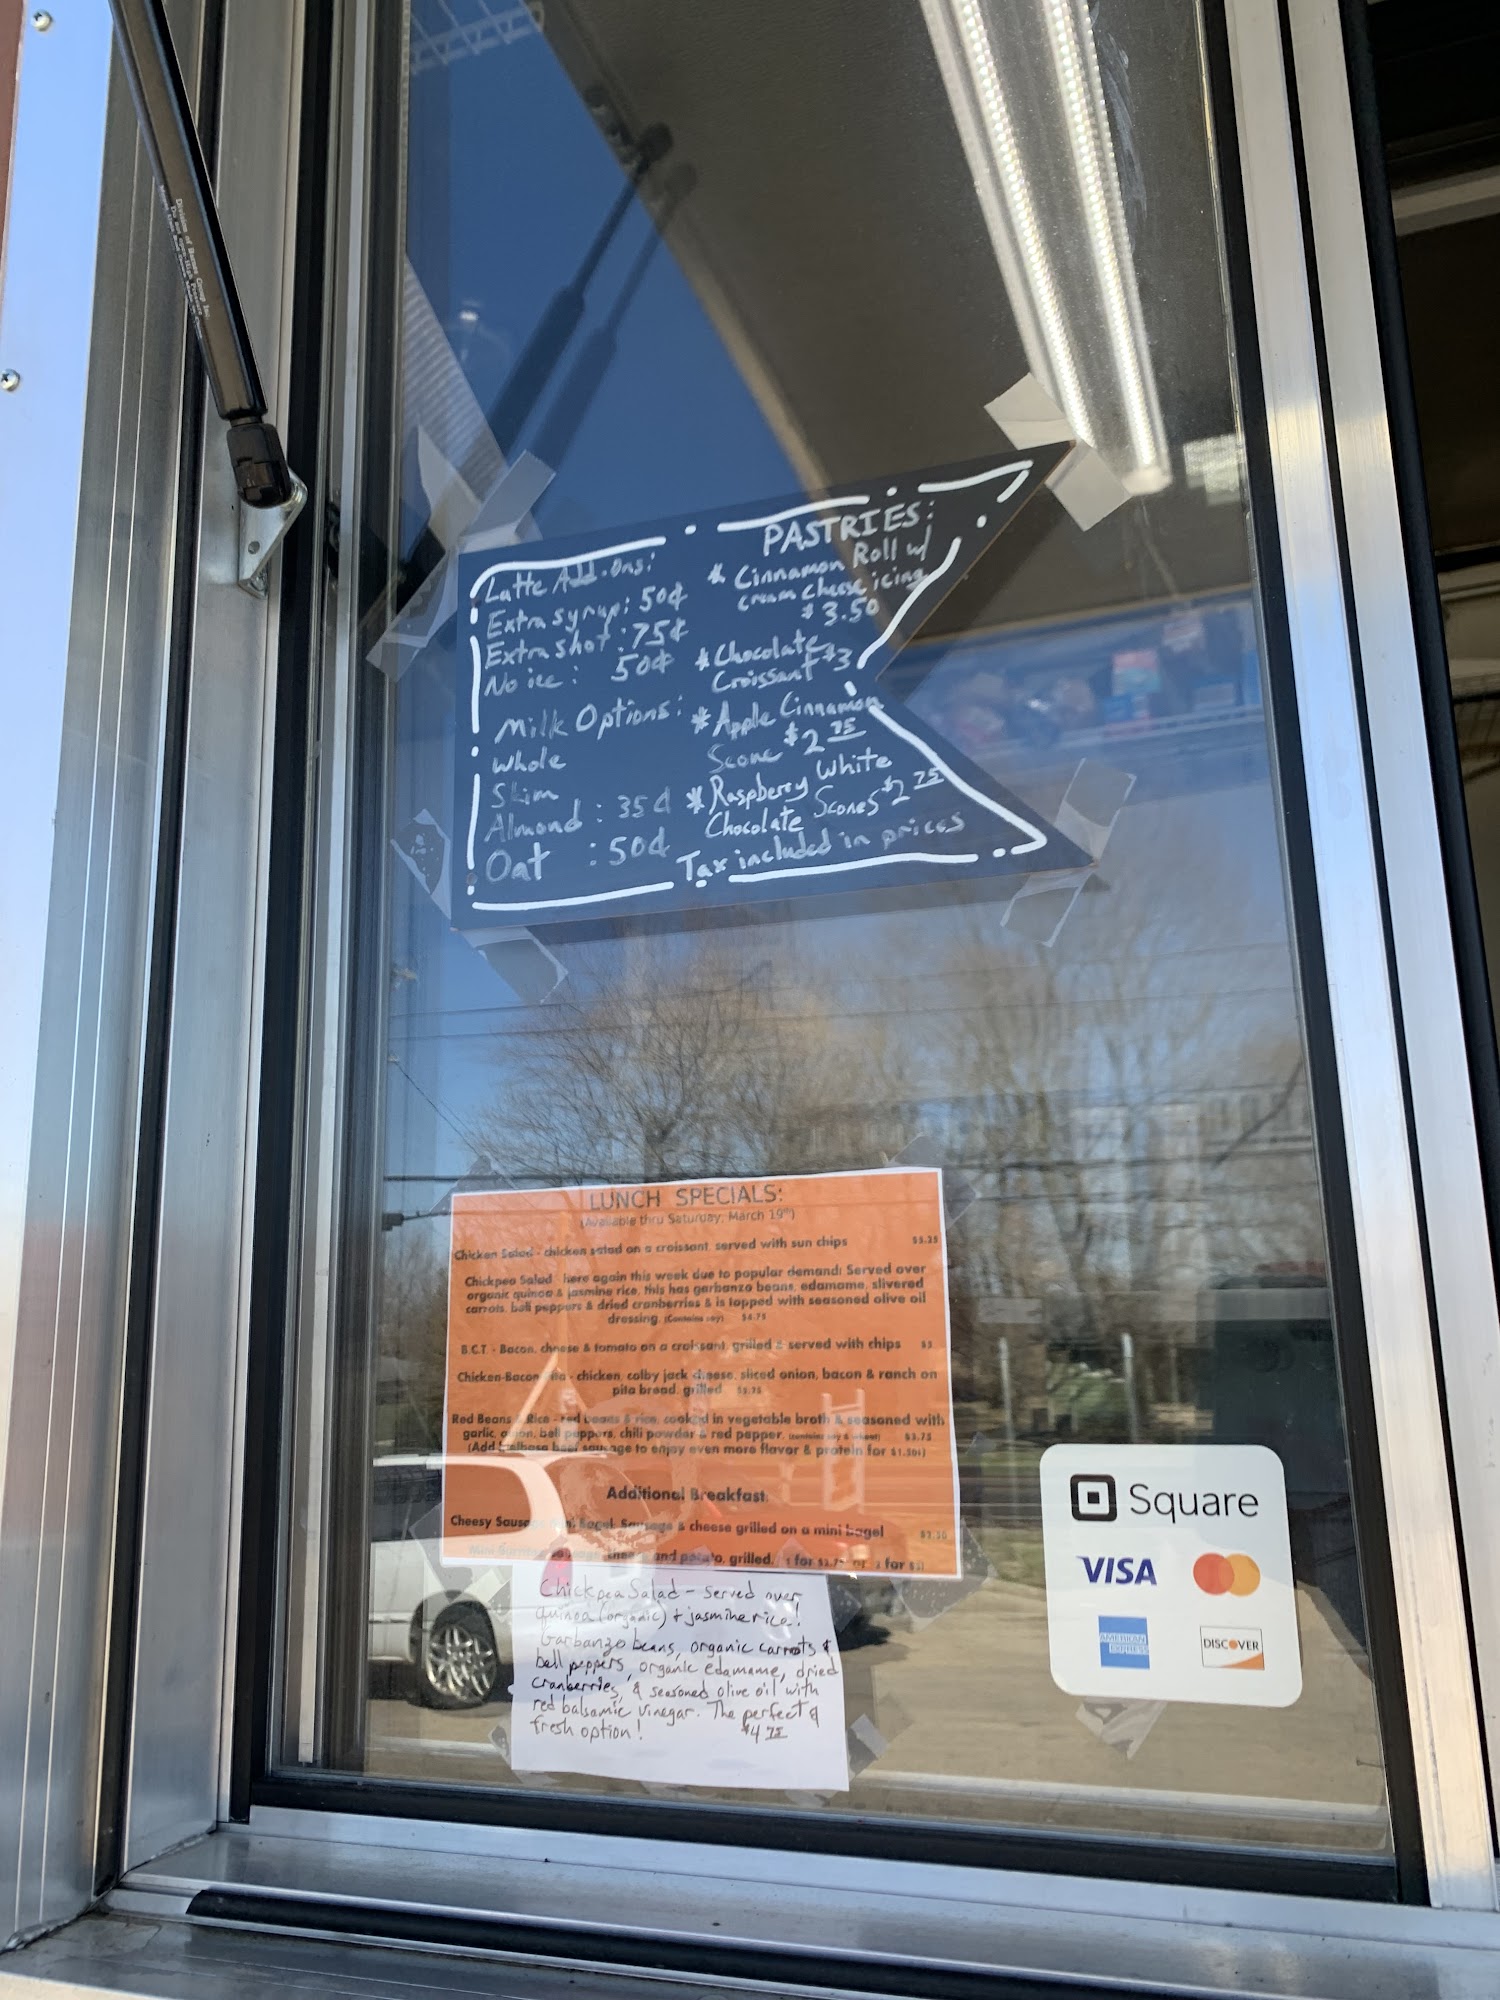 Latte Add-ons:
Extra syrup: 50¢
Extra shot: 75¢
No ice: 50¢
Milk Options:
Whole
Skim
Almond: 35¢
Oat: 50¢
PASTRIES:
* Cinnamon Roll w/
cream cheese icing
$3.50
* Chocolate $3
Croissant
* Apple Cinnamon
Scone $2 75
* Raspberry White
Chocolate Scones $2 75
Tax included in prices
LUNCH SPECIALS:
(Available thru Saturday, March 19th)
Chicken Salad - chicken salad on a croissant, served with sun chips $3.25
Chickpea Salad - here again this week due to popular demand! Served over
organic quinoa & jasmine rice, this has garbanzo beans, edamame, slivered
carrots, bell peppers & dried cranberries & is topped with seasoned olive oil
dressing. (Contains soy) $4.75
B.C.T. - Bacon, cheese & tomato on a croissant, grilled & served with chips $3
Chicken-Bacon Pita - chicken, colby jack cheese, sliced onion, bacon & ranch on
pita bread, grilled $3.75
Red Beans & Rice - red beans & rice, cooked in vegetable broth & seasoned with
garlic, onion, bell peppers, chili powder & red pepper. (contains soy & wheat) $3.75
(Add beef sausage to enjoy even more flavor & protein for $1.50!)
Additional Breakfast:
Cheesy Sausage Mini Bagel: Sausage & cheese grilled on a mini bagel
Mini Burritos and potato, grilled.
Chickpea Salad - served over
quinoa (organic) + jasmine rice!
Garbanzo beans, organic carrots &
bell peppers, organic edamame, dried
cranberries, & seasoned olive oil with
red balsamic vinegar. The perfect &
fresh option! $4 75
Square
VISA
AMERICAN
EXPRESS
DISCOVER